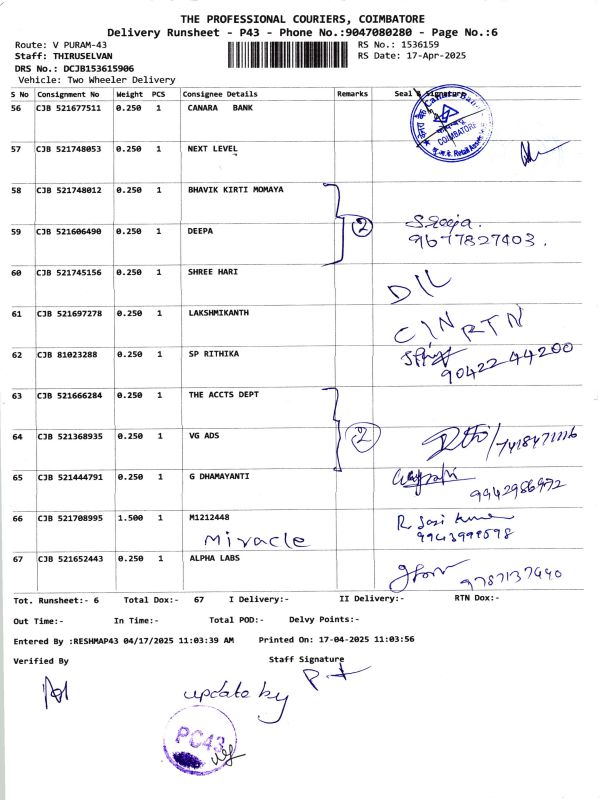 THE PROFESSIONAL COURIERS, COIMBATORE
Delivery Runsheet - P43 - Phone No.:9047080280 - Page No.:6
Route: V PURAM-43 RS No.: 1536159
Staff: THIRUSELVAN RS Date: 17-Apr-2025
DRS No.: DCJB153615906
Vehicle: Two Wheeler Delivery
S No Consignment No Weight PCS Consignee Details Remarks Seal & Signature
56 CJB 521677511 0.250 1 CANARA BANK
COIMBATORE
57 CJB 521748053 0.250 1 NEXT LEVEL
58 CJB 521748012 0.250 1 BHAVIK KIRTI MOMAYA
2
59 CJB 521606490 0.250 1 DEEPA Sreeja.
9677827403.
60 CJB 521745156 0.250 1 SHREE HARI D/L
61 CJB 521697278 0.250 1 LAKSHMIKANTH C/N RTN
62 CJB 81023288 0.250 1 SP RITHIKA
90422 44200
63 CJB 521666284 0.250 1 THE ACCTS DEPT
2
64 CJB 521368935 0.250 1 VG ADS /7418471116
65 CJB 521444791 0.250 1 G DHAMAYANTI
9942986972
66 CJB 521708995 1.500 1 M1212448 R. Sasi Kumar
Miracle 9943999598
67 CJB 521652443 0.250 1 ALPHA LABS
9787137440
Tot. Runsheet:- 6 Total Dox:- 67 I Delivery:- II Delivery:- RTN Dox:-
Out Time:- In Time:- Total POD:- Delvy Points:-
Entered By :RESHMAP43 04/17/2025 11:03:39 AM Printed On: 17-04-2025 11:03:56
Verified By Staff Signature
update by
PC43